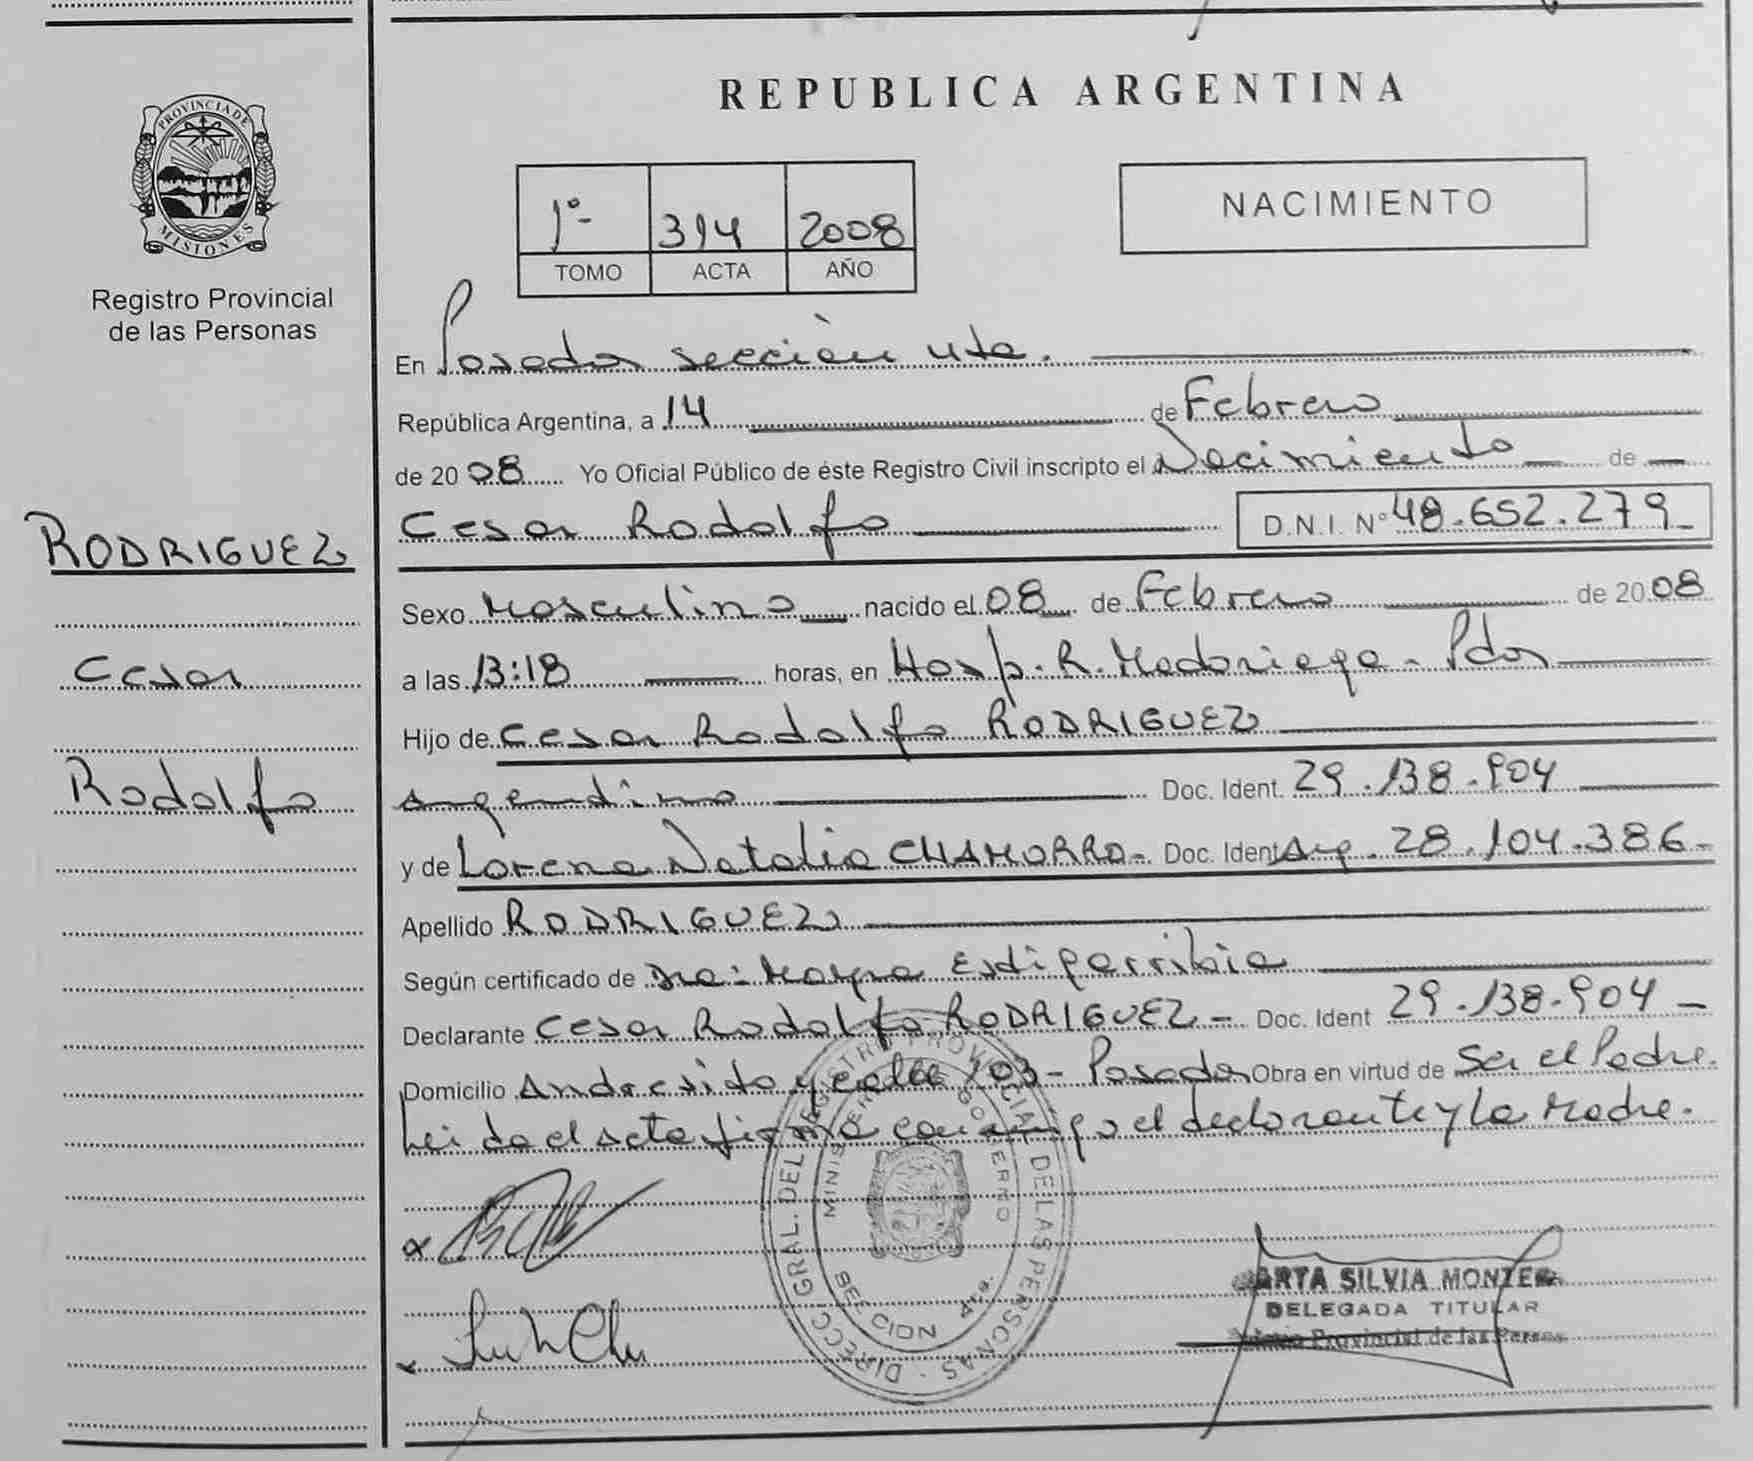 REPUBLICA ARGENTINA
PROVINCIA DE MISIONES
Registro Provincial
de las Personas
1º- 314 2008
TOMO ACTA AÑO
NACIMIENTO
En Posadas sección 4ta.
República Argentina, a 14 de Febrero
de 2008 Yo Oficial Público de éste Registro Civil inscripto el Nacimiento de
Cesar Rodolfo D.N.I. Nº 48.652.279
RODRIGUEZ
Cesar
Rodolfo
Sexo Masculino nacido el 08 de Febrero de 2008
a las 13:18 horas, en Hosp. R. Madariaga - Pdas
Hijo de Cesar Rodolfo RODRIGUEZ
argentino Doc. Ident. 29.138.904
y de Lorena Natalia CHAMORRO- Doc. Ident Arg. 28.104.386-
Apellido RODRIGUEZ
Según certificado de Dra: Mayra Estigarribia
Declarante Cesar Rodolfo RODRIGUEZ - Doc. Ident 29.138.904 -
Domicilio Andresito y calle 103 - Posadas Obra en virtud de Ser el Padre.
Leida el acta firma conmigo el declarante y la Madre.
DIRECC. GRAL. DEL REGISTRO PROVINCIAL DE LAS PERSONAS
MINISTERIO DE GOBIERNO
SECCION 4ta.
ARTA SILVIA MONTE
DELEGADA TITULAR
Provincial de las Person